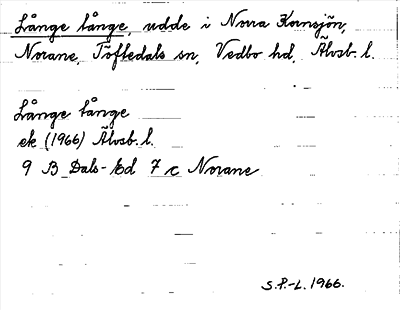 Långe tånge, udde i Norra Kornsjön,
Norane, Töftedals sn, Vedbo hd, Älvsb. l.
Långe tånge
ek (1966) Älvsb. l.
9 B Dals-Ed 7 c Norane
S.P.-L. 1966.